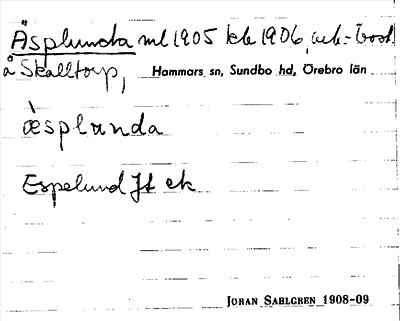 Äsplunda ml 1905 kb 1906,
å Skalltorp, Hammars sn, Sundbo hd, Örebro län
æ̀splunda
Espelund Jt ek
JÖRAN SAHLGREN 1908-09